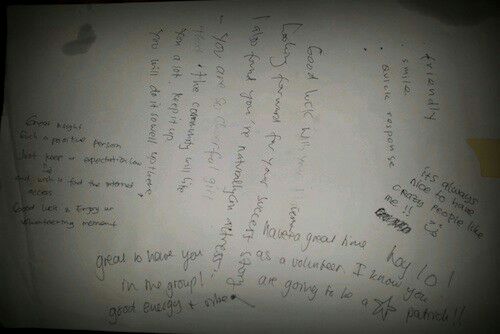 friendly
• smile
• quick response
Good luck with your
Looking forward for your success story
I also found you're naturally an actress.
- You are a cheerful girl
• the community will like
You a lot. keep it up
You will do it so well
Great
Such a positive person
Just keep a expectation low
And wish u find the internet
access
Good luck & Enjoy ur
volunteering moment
its always
nice to have
crazy people like
me !!
hay lo !
have a great time
as a volunteer. I know you
are going to be a ☆
great to have you
in the group!
good energy + vibe